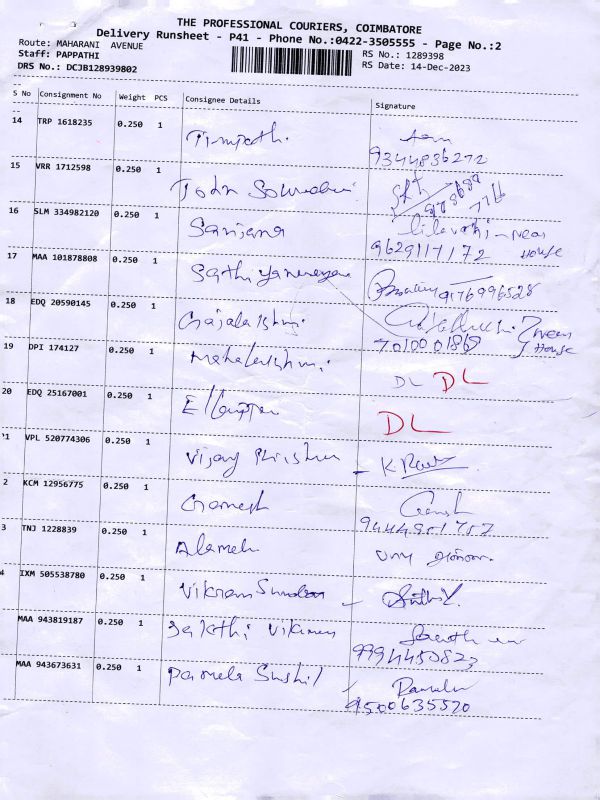 THE PROFESSIONAL COURIERS, COIMBATORE
Delivery Runsheet - P41 - Phone No.:0422-3505555 - Page No.:2
Route: MAHARANI AVENUE
RS No.: 1289398
Staff: PAPPATHI
RS Date: 14-Dec-2023
DRS No.: DCJB128939802
S No Consignment No Weight PCS Consignee Details Signature
14 TRP 1618235 0.250 1
9344836272
15 VRR 1712598 0.250 1 John
16 SLM 334982120 0.250 1 Sanjana Lilavathi - near House
9629117172
17 MAA 101878808 0.250 1 Sathiyanarayan 9176996528
18 EDQ 20590145 0.250 1 Gajalakshmi near House
7010001868
19 DPI 174127 0.250 1 Mahalakshmi DL DL
20 EDQ 25167001 0.250 1 DL
21 VPL 520774306 0.250 1 Vijay Krishna - K Ravi
2 KCM 12956775 0.250 1 Ganesh Ganesh
9444951757
3 TNJ 1228839 0.250 1 Alamelu
4 IXM 505538780 0.250 1 Vikram Sundar -
MAA 943819187 0.250 1 Sakthi Vikram
9994450823
MAA 943673631 0.250 1 Pamela Sushil Pamela
9500635520